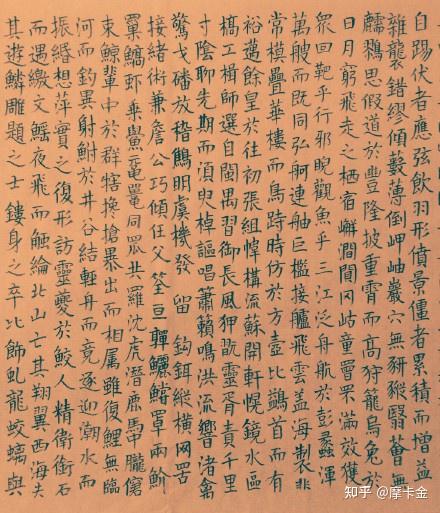 自踢伏者應弦飲羽形僨景僵者累積而增益
雜襲錯繆傾藪薄倒岬岫巖穴無豜豵翳薈無
麡鷚思假道於豐隆披重霄而高狩籠烏兔於
日月窮飛走之栖宿嶰澗閴岡岵童罾罘滿效獲
衆回靶乎行邪睨觀魚乎三江泛舟航於彭蠡渾
萬艘而既同弘舸連舳巨檻接艫飛雲盖海製非
常模疊華樓而島跱時仿於方壺比鷁首而有
裕邁餘皇於往初張組幃構流蘇開軒幌鏡水區
槁工楫師選自閩禺習御長風狎翫靈胥責千里
寸陰聊先期而須臾棹謳唱簫籟鳴洪流響渚禽
驚弋磻放稽鷦明虞機發留 鈎餌縱橫網罟
接緒術兼詹公巧傾任父筌䱎鱺鱨罩兩魪
罺鰝鰕乘鱟黿鼉同罛共羅沈虎潛鹿馽龓窘
束鯨輩中於群犗攙搶暴出而相属雖復鯉無臨
河而釣異射鮒於井谷結輕舟而竟逐迎潮水而
振緡想萍實之復形訪靈夔於鮫人精衛銜石
而遇繳文鰩夜飛而触綸北山亡其翔翼西海失
其遊鱗雕題之士鏤身之卒比飾虬龍蛟螭與
知乎 @摩卡金